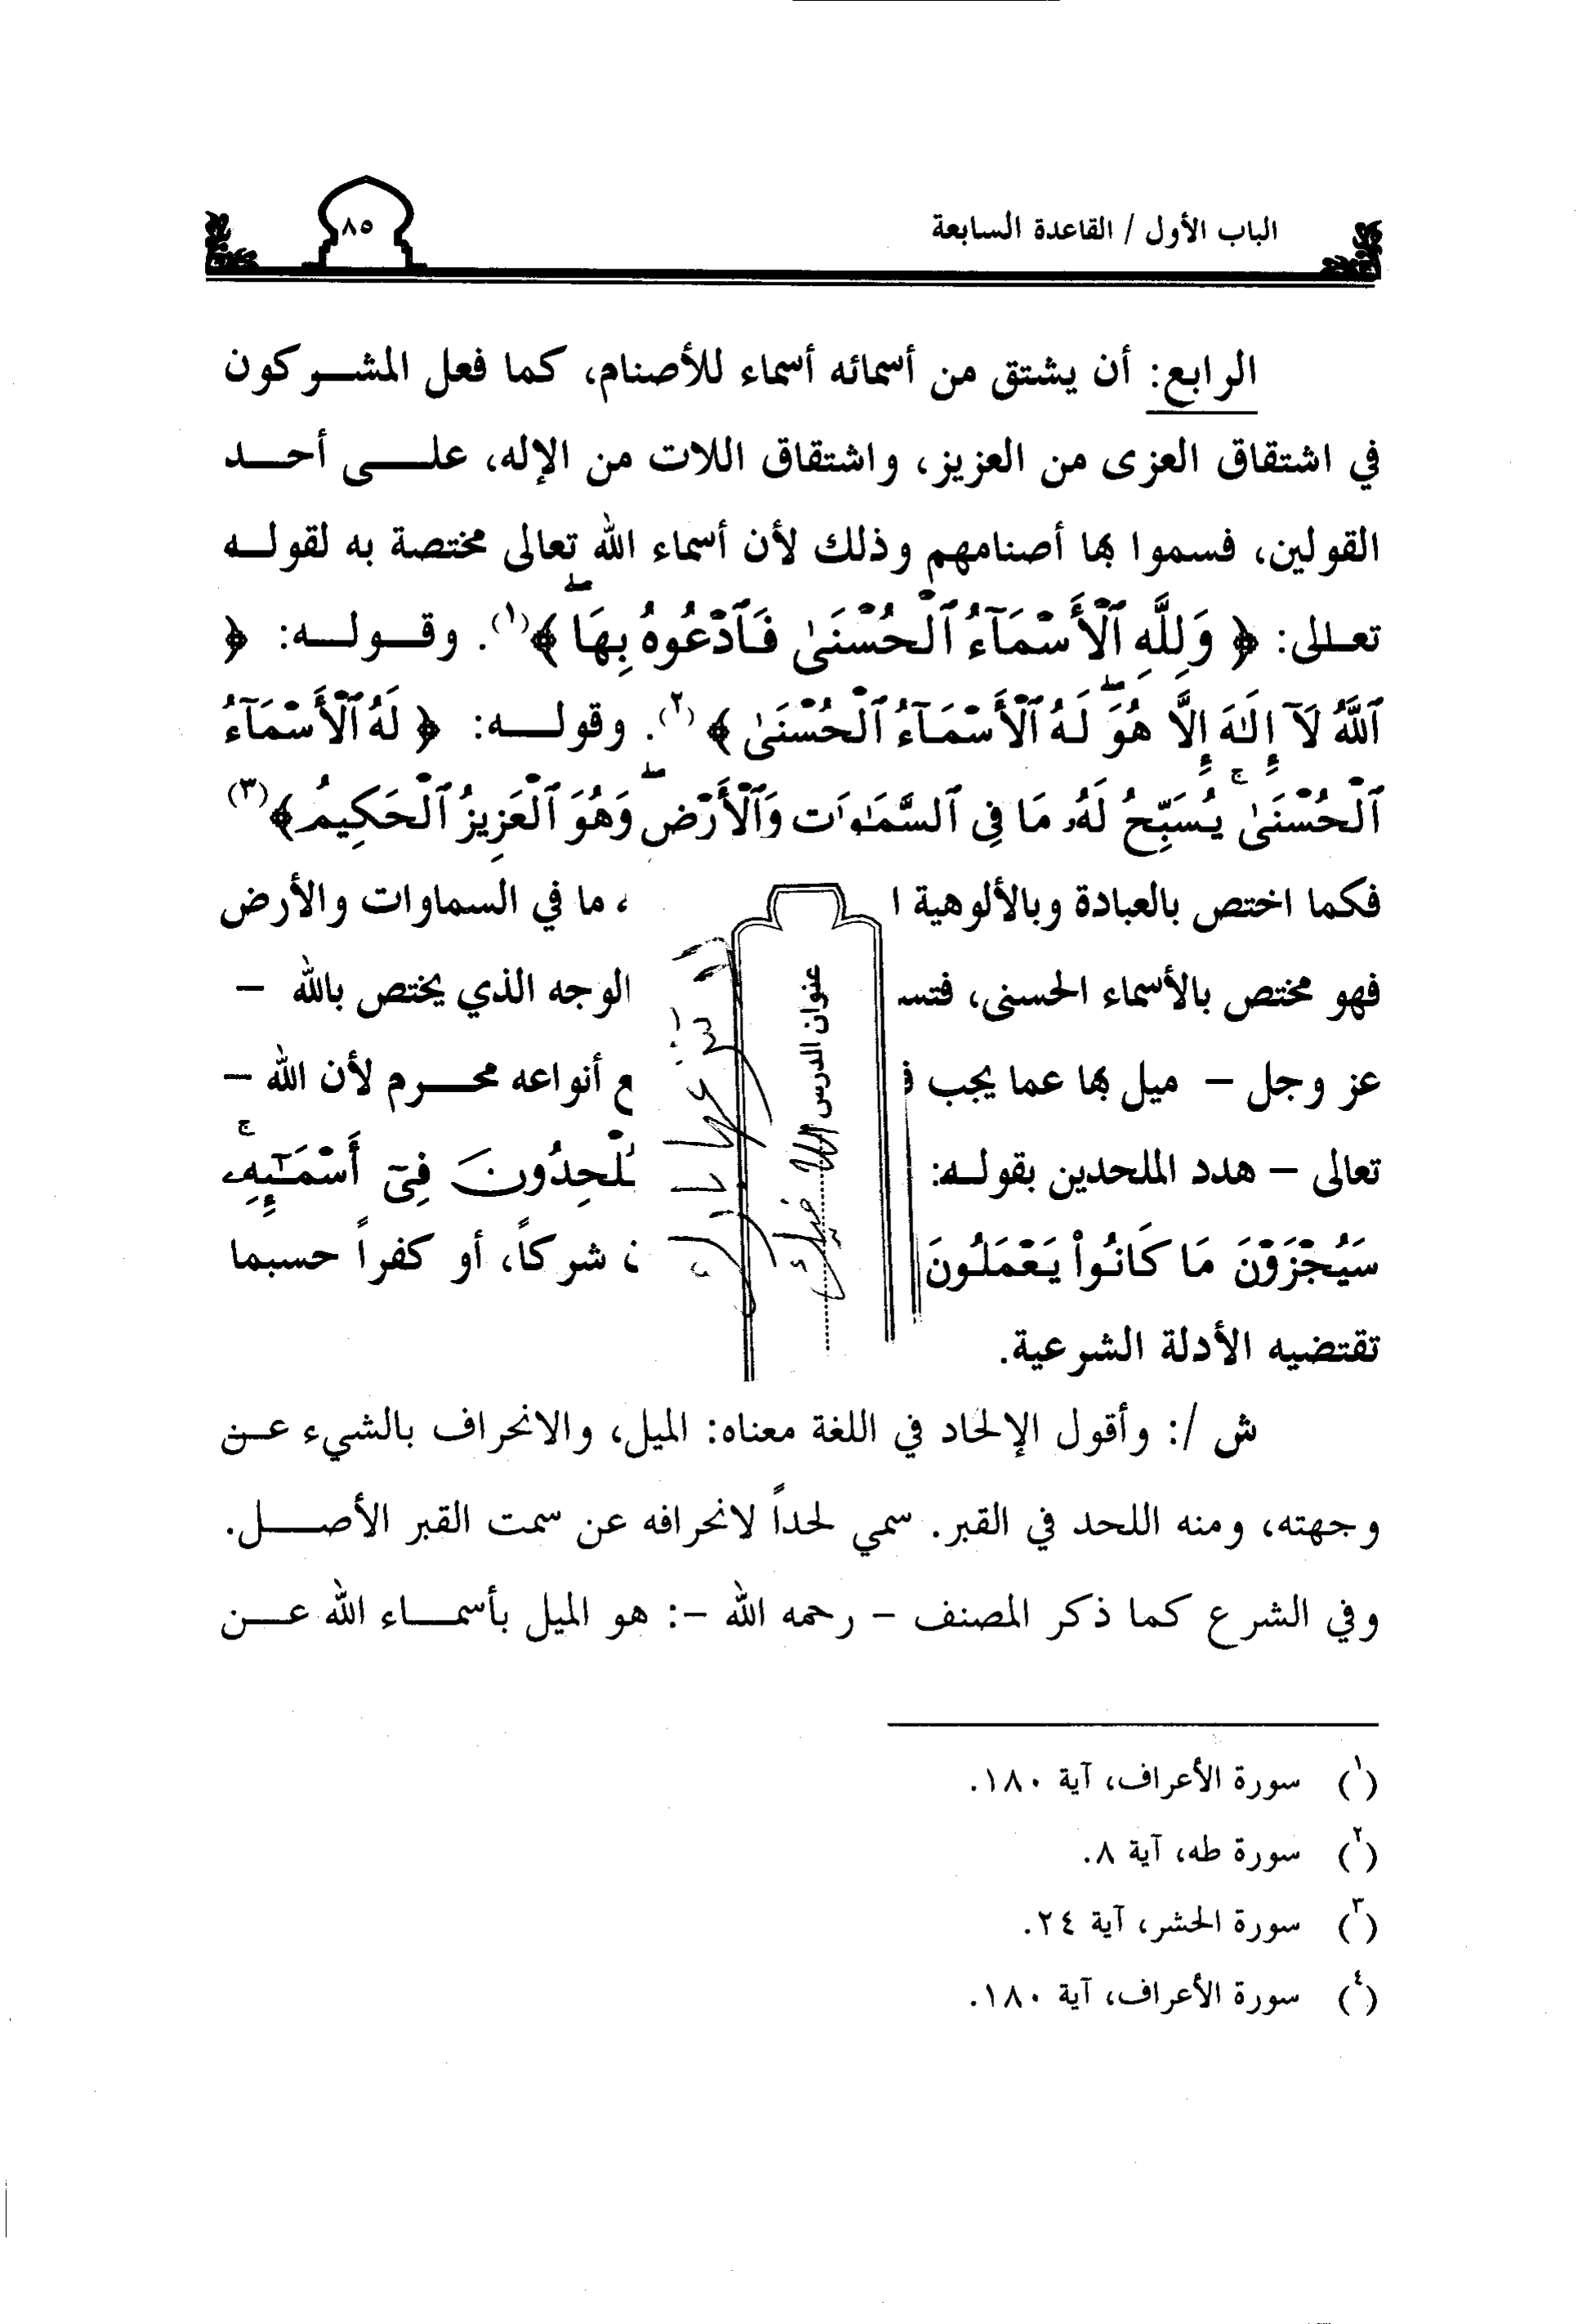 الباب الأول / القاعدة السابعة
٨٥
الرابع: أن يشتق من أسمائه أسماء للأصنام، كما فعل المشـــركون
في اشتقاق العزى من العزيز، واشتقاق اللات من الإله، علـــى أحـــد
القولين، فسموا بها أصنامهم وذلك لأن أسماء الله تعالى مختصة به لقولـــه
تعالى: ﴿ وَلِلَّهِ ٱلْأَسْمَآءُ ٱلْحُسْنَىٰ فَٱدْعُوهُ بِهَاۖ ﴾(١). وقـــولـــه: ﴿
ٱللَّهُ لَآ إِلَـٰهَ إِلَّا هُوَۖ لَهُ ٱلْأَسْمَآءُ ٱلْحُسْنَىٰ ﴾(٢). وقولـــه: ﴿ لَهُ ٱلْأَسْمَآءُ
ٱلْحُسْنَىٰۚ يُسَبِّحُ لَهُۥ مَا فِى ٱلسَّمَـٰوَٰتِ وَٱلْأَرْضِۖ وَهُوَ ٱلْعَزِيزُ ٱلْحَكِيمُ﴾(٣)
فكما اختص بالعبادة وبالألوهية ، ما في السماوات والأرض
فهو مختص بالأسماء الحسنى، الوجه الذي يختص بالله –
عز وجل – ميل بها عما يجب أنواعه محـــرم لأن الله –
تعالى – هدد الملحدين بقولـه: فِىٓ أَسْمَـٰٓئِهِۦۚ
سَيُجْزَوْنَ مَا كَانُوا۟ يَعْمَلُونَ شركاً، أو كفراً حسبما
تقتضيه الأدلة الشرعية.
عنوان الدرس
ش /: وأقول الإلحاد في اللغة معناه: الميل، والانحراف بالشيء عـــن
وجهته، ومنه اللحد في القبر. سمي لحداً لانحرافه عن سمت القبر الأصـــل.
وفي الشرع كما ذكر المصنف – رحمه الله –: هو الميل بأسمـــاء الله عـــن
(١) سورة الأعراف، آية ١٨٠.
(٢) سورة طه، آية ٨.
(٣) سورة الحشر، آية ٢٤.
(٤) سورة الأعراف، آية ١٨٠.